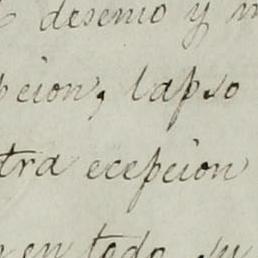 desenio y
pcion, lapso
tra ecepcion
en todo su